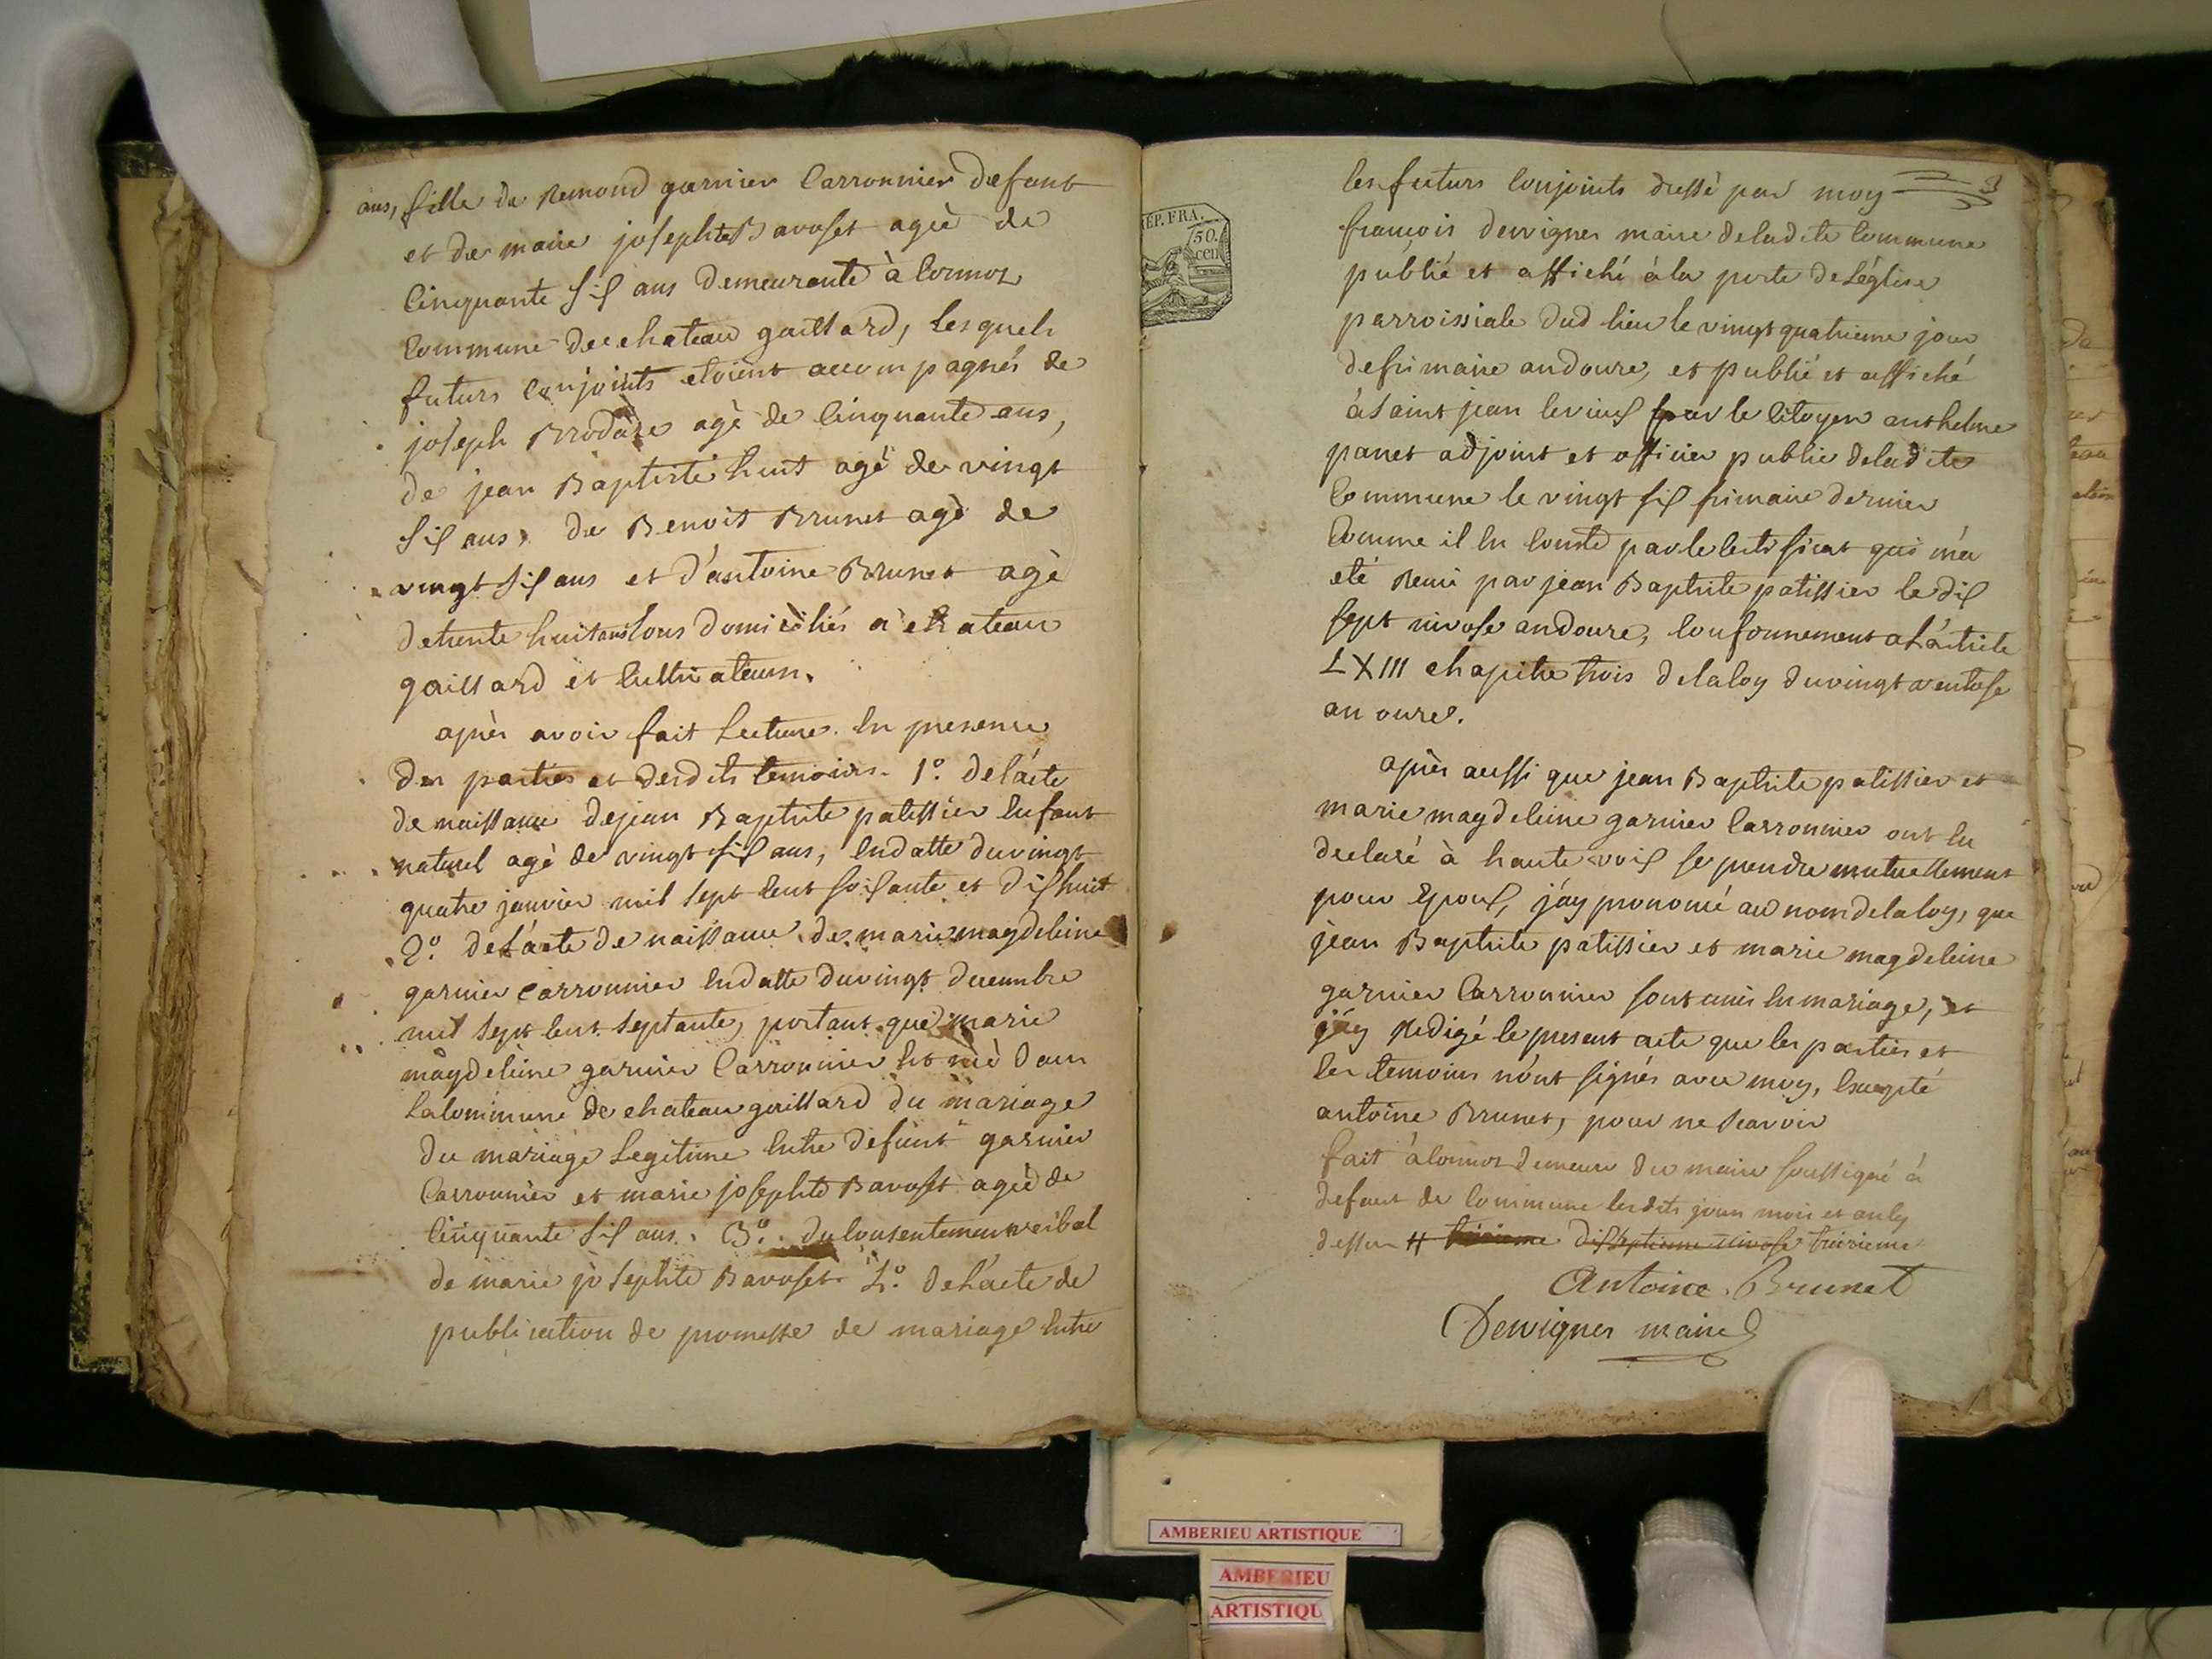 ans, fille de Remond garnier Carronnier defunt
et de marie josephte Bavoset agèe de
Cinquante six ans demeurante à Cormoz
Commune de chateau gaillard, lesquels
futurs conjoints etoient accompagnés de
joseph Brodàze agè de Cinquante ans,
de jean Baptiste huit agè de vingt
six ans, de Benoit Brunet agè de
vingt six ans et d'antoine Brunet agè
de trente huit ans tous domiciliés à chateau
gaillard et Cultivateurs.
après avoir fait Lecture en presence
des parties et desdits temoins. 1.º de l'acte
de naissance de jean Baptiste patissier Enfant
naturel agè de vingt six ans, En datte du vingt
quatre janvier mil sept Cent soixante et dix huit
2.º de L'acte de naissance de marie magdeleine
garnier Carronnier En datte du vingt decembre
mil sept Cent septante, portant que marie
magdeleine garnier Carronnier Est née dans
La Commune de chateau gaillard du mariage
du mariage Legitime Entre defunt garnier
Carronnier et marie josephte Bavoset agèe de
Cinquante six ans. 3.º du Consentement verbal
de marie josephte Bavoset 4.º de L'acte de
publication de promesse de mariage Entre
REP. FRA.
50.
cen
les futurs Conjoints dressé par moy
françois dervignes maire de ladite Commune
publié et affiché à la porte de L'église
parroissiale dud lieu le vingt quatrieme jour
de frimaire an douze, et publié et affiché
à saint jean le vieux par le Citoyen anthelme
panet adjoint et officier public de ladite
Commune le vingt six frimaire dernier
Comme il En Conste par le Certificat qui m'a
eté Remi par jean Baptiste patissier le dix
sept nivose an douze, Conformement a L'article
LXIII chapitre trois de la loy du vingt ventose
an onze.
après aussi que jean Baptiste patissier et
marie magdeleine garnier Carronnier ont Eu
declaré à haute voix se prendre mutuellement
pour Epoux, j'ay prononcé au nom de la loy, que
jean Baptiste patissier et marie magdeleine
garnier Carronnier sont unis En mariage, et
j'ay Redigé le present acte que les parties et
les temoins n'ont signés avec moy, Excepté
antoine Brunet, pour ne scavoir
fait à Cormoz demeure du maire soussigné à
defaut de Commune lesdits jour mois et an cy
dessus # troisieme dixseptieme nivose troisieme
Antoine Brunet
Dervignes maire
AMBERIEU ARTISTIQUE
AMBERIEU
ARTISTIQU